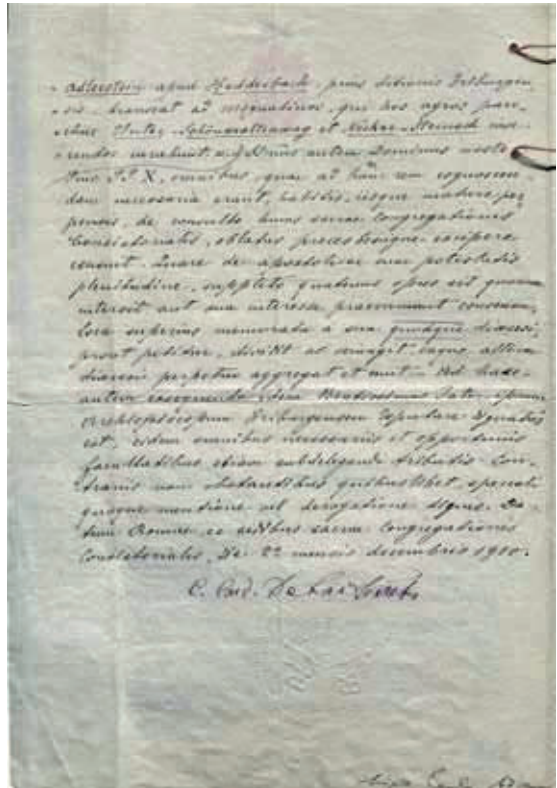 Adlerstein apud Heddesbach, prius ditionis Friburgen
sis, transeat ad Moguntinos, qui hos agros paro
chiae Unter-Schönmattenwag et Neckar-Steinach inse
rendos
autem Dominus noste
Pius P.P. X, omnibus, quae ad hanc rem cognoscen
dam necessaria erant, habitis, iisque mature per
pensis, de consulto huius sacrae Congregationis
Consistorialis, oblatas preces benigne excipere
censuit. Quare de apostolicae suae potestatis
plenitudine, suppleto quatenus opus sit quorum
intersit aut sua interesse praesumant consensu,
loca superius memorata a sua quaeque dioecesi
prout petitur, dividit ac
dioecesi perpetuo aggregat et unit. Ad haec
autem exsequenda idem Beatissimus Pater, ipsum
Archiepiscopum Friburgensem deputare dignatus
est, eidem omnibus necessariis et opportunis
facultatibus etiam subdelegandi tributis. Con
trariis non obstantibus quibuslibet, speciali
quoque mentione vel derogatione dignis. Da
tum Romae, ex aedibus sacrae Congregationis
Consistorialis, die 22 mensis decembris 1910.
C. Card. De Lai Secret.